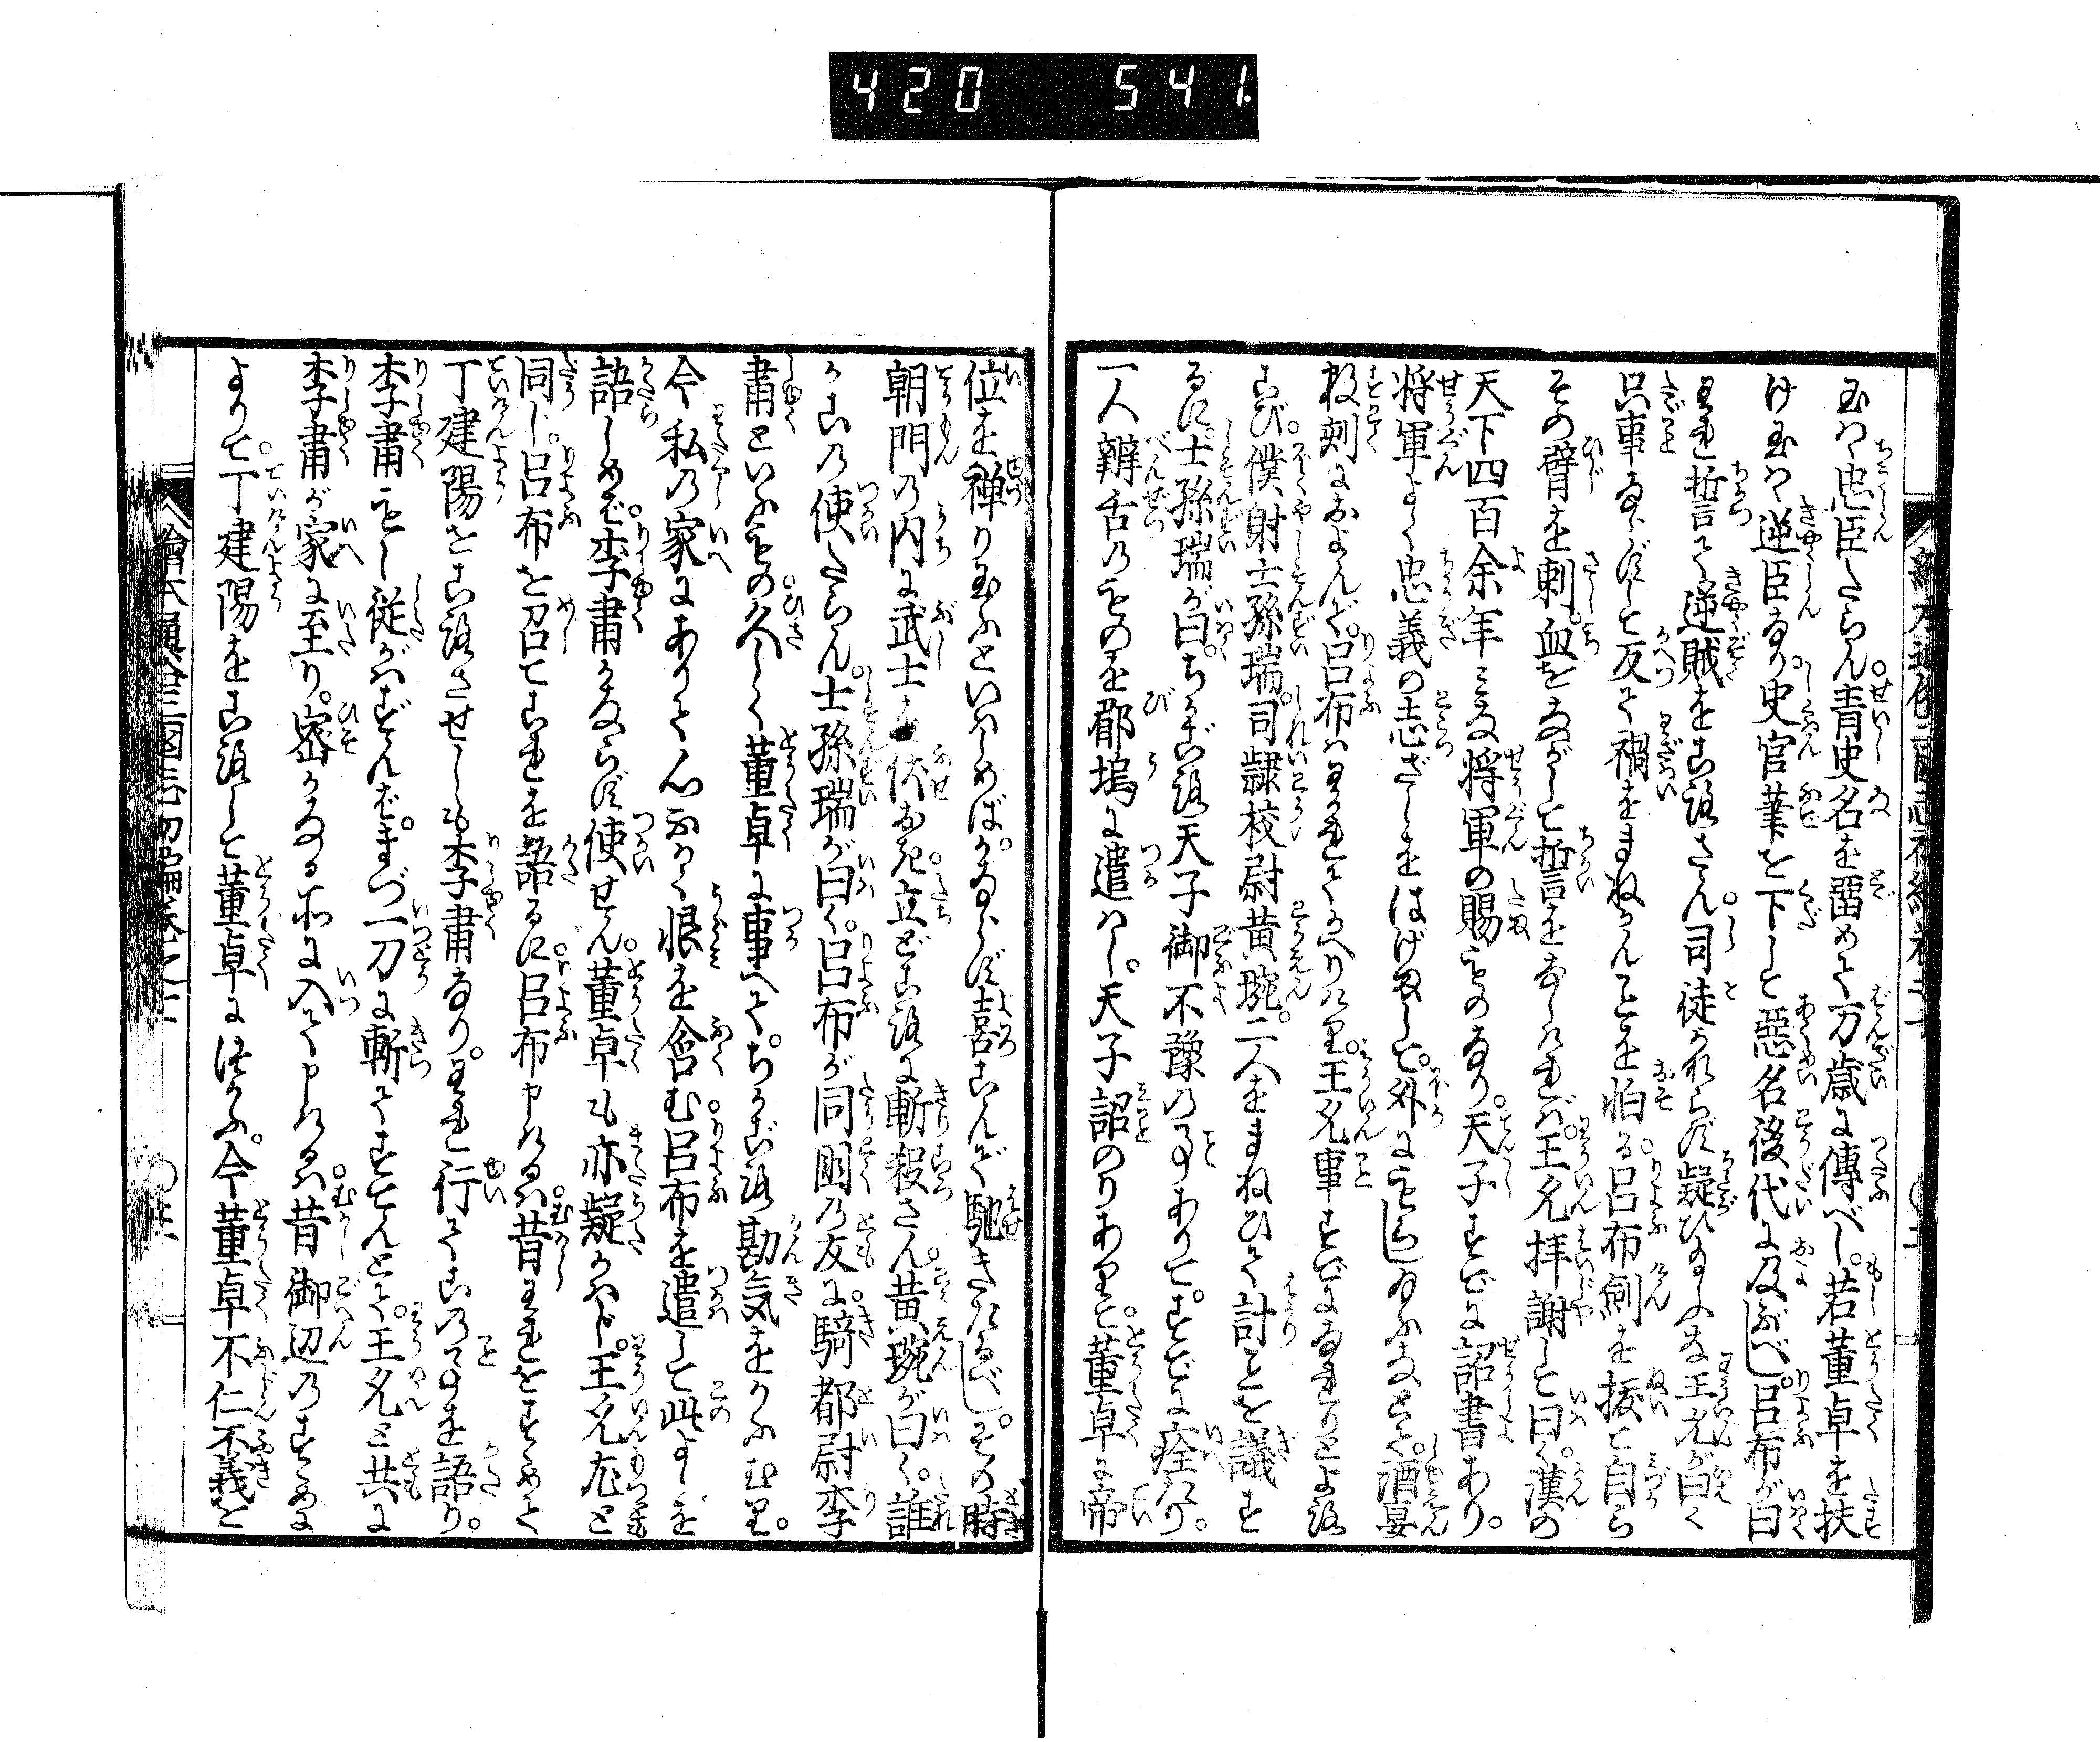 420 541.
玉はゞ忠臣たらん。青史名を畱めて万歳に傳べし。若董卓を扶
け玉はゞ逆臣なり。史官筆を下して惡名後代に及ぶべし。呂布が曰
われ誓て逆賊をころさん。司徒かならず疑ひ玉ふな王允が曰く
只事ならずして反て禍をまねかんことを怕る。呂布劍を拔て自ら
その臂を刺。血をながして誓をなしければ。王允拝謝して曰く。漢の
天下四百余年みな将軍の賜ものなり。天子すでに詔書あり。
将軍よく忠義の志ざしをはげまして。外にもらし玉ふなとて。酒宴
数刻におよんで。呂布はわかれてかへりけり。王允事すでになれりとよろ
こび。僕射士孫瑞。司隷校尉黄琬。二人をまねひて計ことを議す
るに。士孫瑞が曰。ちかごろ天子御不豫の事ありて。すでに痊けり。
一人辯舌のものを郿塢に遣はし。天子詔のりありと。董卓に帝
位を禅り玉ふといはしめば。かならず喜こんで馳きたるべし。その時
朝門の内に武士を伏おき。立どころに斬殺さん。黄琬が曰く。誰
かこの使たらん。士孫瑞が曰く。呂布が同国の友に。騎都尉李
肅といふもの。久しく董卓に事へて。ちかごろ勘気をかふむり。
今私の家にありて心ふかく恨を含む。呂布を遣して此よしを
語しめば。李肅かならず使せん。董卓も亦疑かはじ。王允尤と
同じ。呂布を召てこれを語るに。呂布申けるは。昔われをすゝめて
丁建陽をころさせしも李肅なり。われ行てこの事を語り。
李肅もし従がはずんば。まづ一刀に斬てすてんとて。王允と共に
李肅が家に至り。密かなる所に入て申けるは。昔御辺のすゝめに
よりて。丁建陽をころして董卓につかふ。今董卓不仁不義を